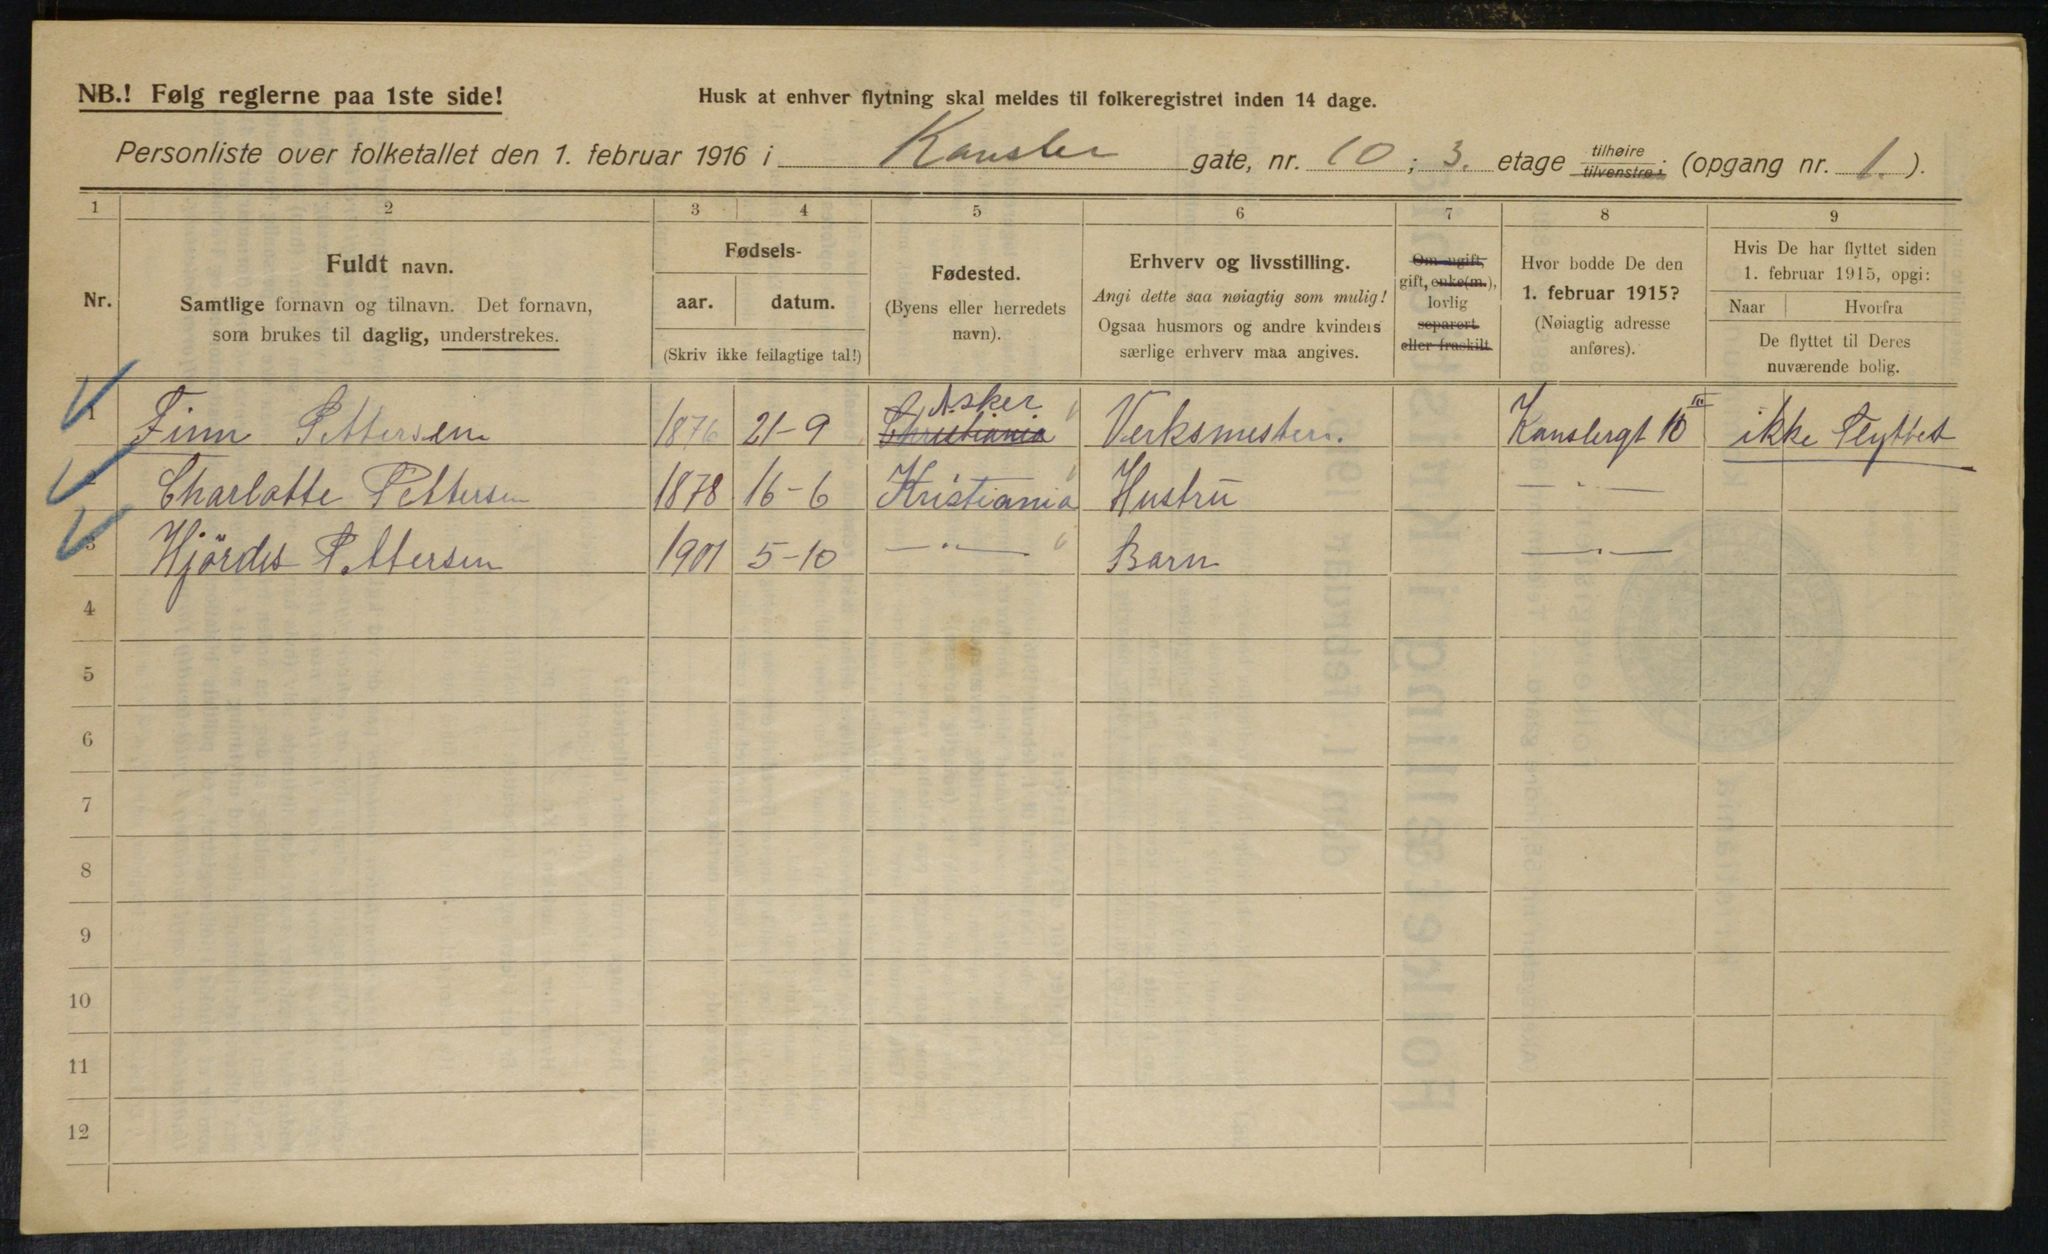 NB.! Følg reglerne paa 1ste side!
Husk at enhver flytning skal meldes til folkeregistret inden 14 dage.
Personliste over folketallet den 1. februar 1916 i Kansler gate, nr. 10 ; 3. etage tilhøire tilvenstre; (opgang nr. 1. ).
1 2 3 4 5 6 7 8 9
Nr.
Fuldt navn.
Samtlige fornavn og tilnavn. Det fornavn,
som brukes til daglig, understrekes.
Fødsels-
aar. datum.
(Skriv ikke feilagtige tal!)
Fødested.
(Byens eller herredets
navn).
Erhverv og livsstilling.
Angi dette saa nøiagtig som mulig!
Ogsaa husmors og andre kvinders
særlige erhverv maa angives.
Om ugift,
gift, enke(m.),
lovlig
separert
eller fraskilt
Hvor bodde De den
1. februar 1915?
(Nøiagtig adresse
anføres).
Hvis De har flyttet siden
1. februar 1915, opgi:
Naar Hvorfra
De flyttet til Deres
nuværende bolig.
1 Finn Pettersen 1876 21-9 Christiania Asker Verksmester. Kanslergt 10 III ikke flyttet
2 Charlotte Pettersen 1878 16-6 Kristiania Hustru — " —
3 Hjördis Pettersen 1901 5-10 — " — Barn — " —
4
5
6
7
8
9
10
11
12